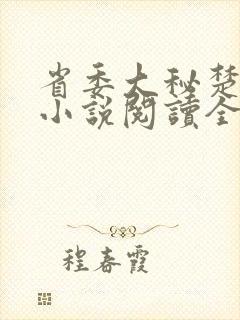 省委大秘楚
小說閱讀全
程春霞